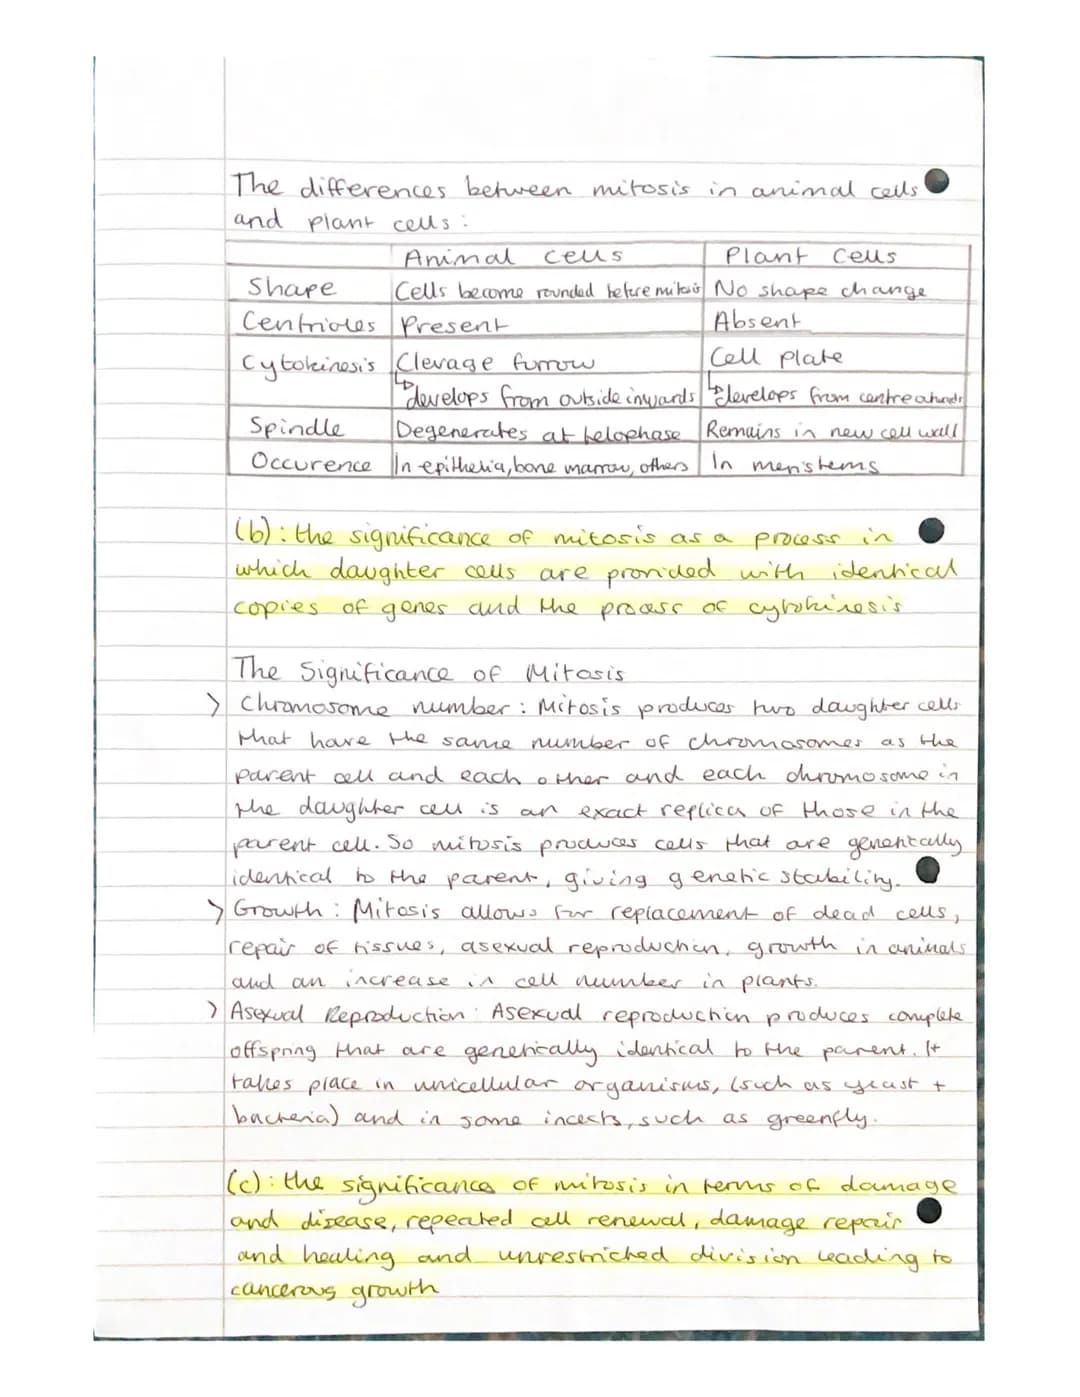 The differences between mitosis in animal cells
and plant cells:
Animal cells Plant Cells
Shape Cells become rounded before mitosis No shape change
Centrioles Present Absent
Cytokinesis Clevage furrow Cell plate
↳ develops from outside inwards ↳ develops from centre outwards
Spindle Degenerates at telophase Remains in new cell wall
Occurence In epithelia, bone marrow, others In meristems
(b): the significance of mitosis as a process in
which daughter cells are provided with identical
copies of genes and the process of cytokinesis
The Significance of Mitosis
> Chromosome number: Mitosis produces two daughter cells
that have the same number of chromosomes as the
parent cell and each other and each chromosome in
the daughter cell is an exact replica of those in the
parent cell. So mitosis produces cells that are genetically
identical to the parent, giving genetic stability.
> Growth: Mitosis allows for replacement of dead cells,
repair of tissues, asexual reproduction, growth in animals
and an increase in cell number in plants.
> Asexual Reproduction: Asexual reproduction produces complete
offspring that are genetically identical to the parent. It
takes place in unicellular organisms, (such as yeast +
bacteria) and in some incects, such as greenfly.
(c): the significance of mitosis in terms of damage
and disease, repeated cell renewal, damage repair
and healing and unrestriched division leading to
cancerous growth